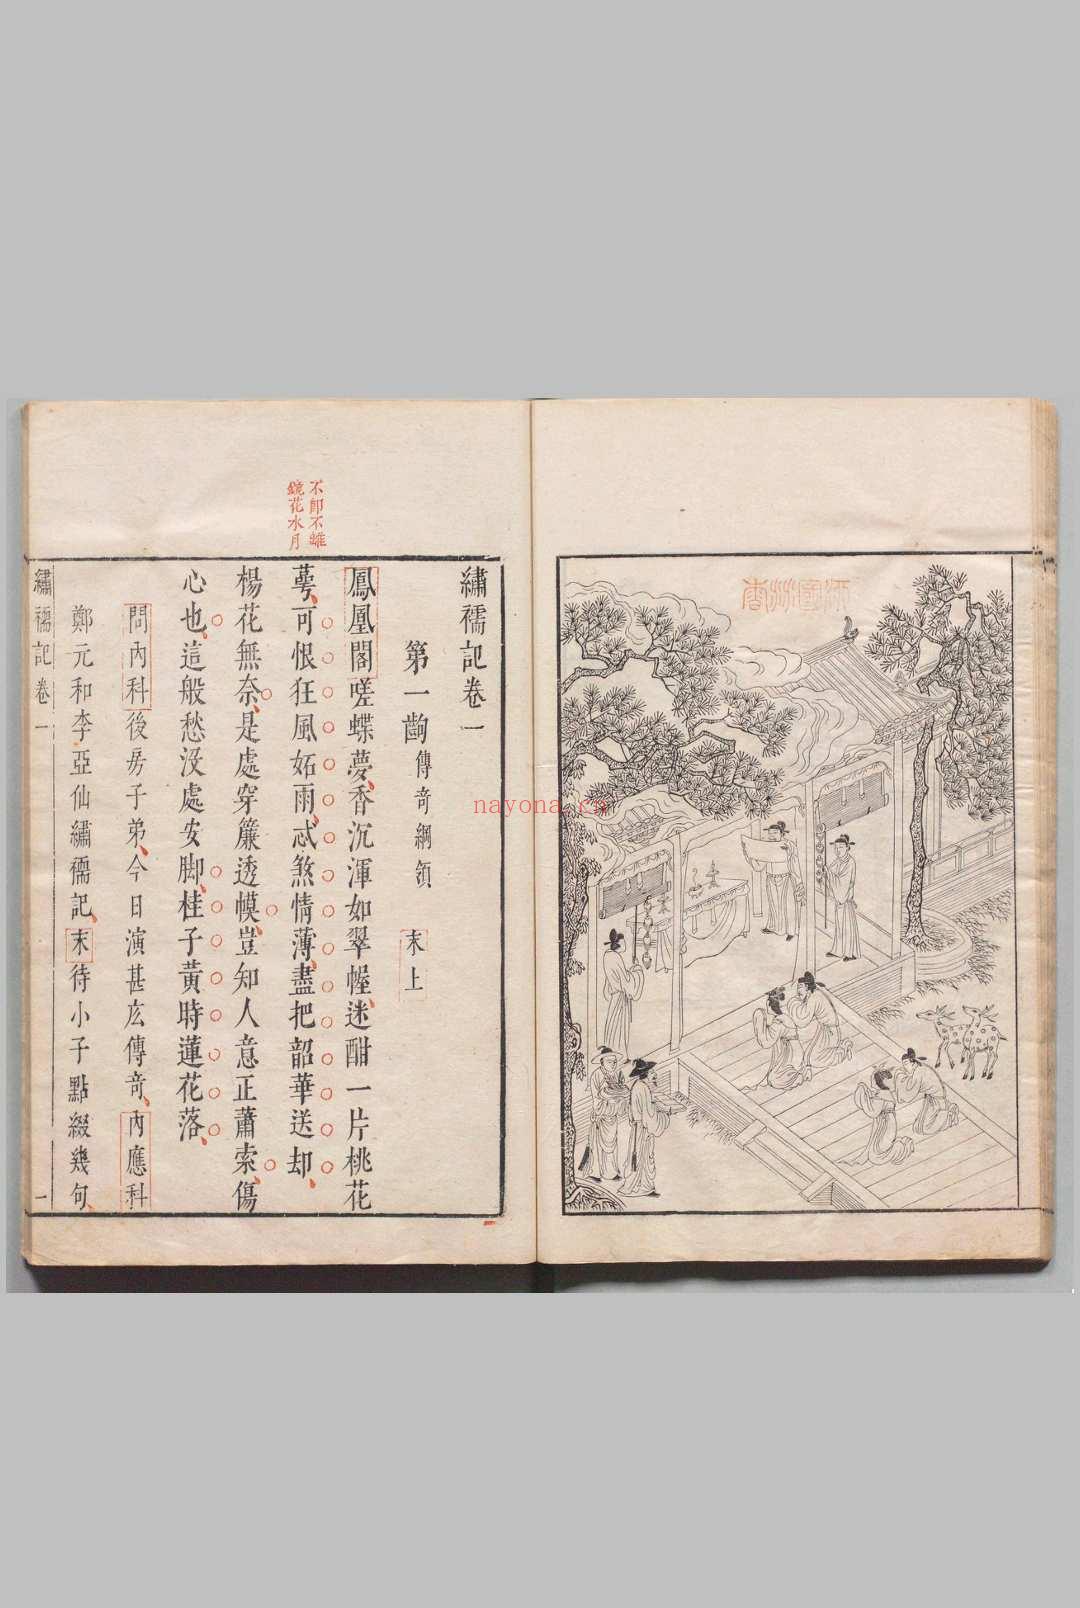 不即不離
鏡花水月
繡襦記卷一
第一齣傳奇綱領 末上
鳳凰閣嗟蝶夢香沉渾如翠幄迷酣一片桃花
萼可恨狂風妬雨忒煞情薄盡把韶華送却
楊花無奈是處穿簾透幙豈知人意正蕭索傷
心也這般愁沒處安脚桂子黃時蓮花落
問內科後房子弟今日演甚庅傳奇內應科
鄭元和李亞仙繡襦記末待小子點綴幾句
繡襦記 卷一 一
nayona.cn